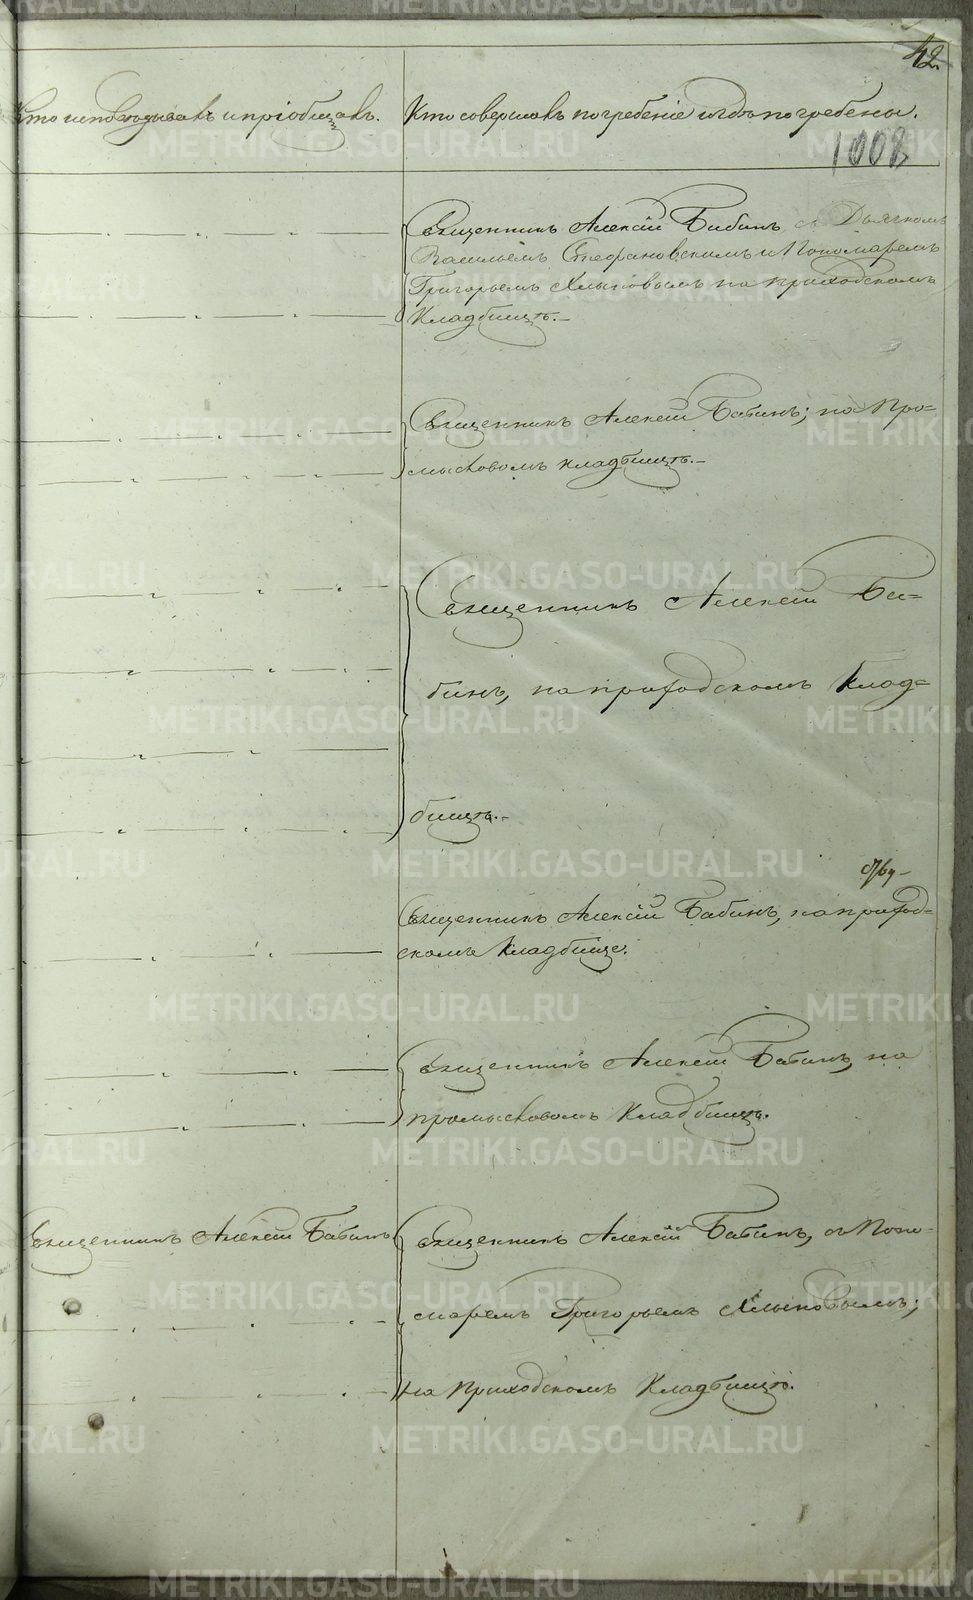 42
Кто исповѣдывалъ и пріобщалъ. Кто совершалъ погребеніе и гдѣ погребены.
1008
Священникъ Алексій Бабинъ съ Дьячкомъ
Васильемъ Стефановскимъ и Пономаремъ
Григорьемъ Хлыновымъ на приходскомъ
Кладбищѣ.
Священникъ Алексій Бабинъ; на Про=
мысловомъ кладбищѣ.
Священникъ Алексій Ба=
бинъ, на приходскомъ Клад=
бищѣ.
Священникъ Алексій Бабинъ, на приход=
скомъ Кладбище.
Священникъ Алексій Бабинъ, на
промысловомъ Кладбищѣ.
Священникъ Алексій Бабинъ
Священникъ Алексій Бабинъ, съ Поно-
маремъ Григорьемъ Хлыновымъ;
на Приходскомъ Кладбищѣ.
METRIKI.GASO-URAL.RU